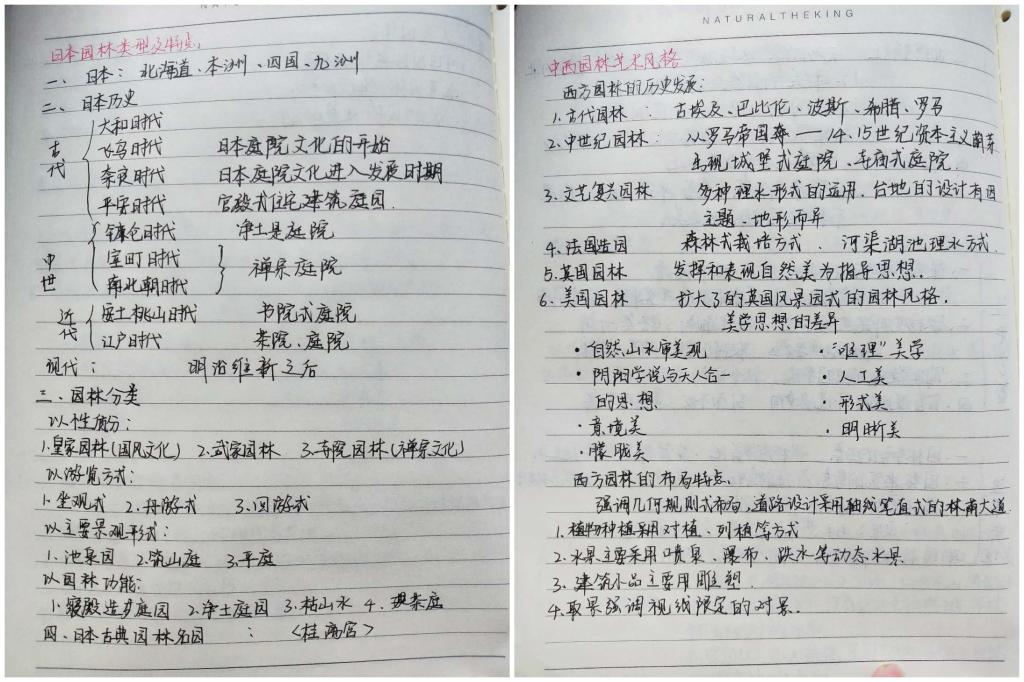 日本园林类型及特点
一、日本：北海道、本洲、四国、九洲
二、日本历史
古代
大和时代
飞鸟时代 日本庭院文化的开始
奈良时代 日本庭院文化进入发展时期
平安时代 官殿式住宅建筑庭园
中世
镰仓时代 净土是庭院
室町时代
南北朝时代
禅宗庭院
近代
安土桃山时代 书院式庭院
江户时代 茶院、庭院
现代： 明治维新之后
三、园林分类
以性质分：
1.皇家园林(国风文化) 2.武家园林 3.寺院园林(禅宗文化)
以游览方式：
1.坐观式 2.舟游式 3.回游式
以主要景观形式：
1.池泉园 2.筑山庭 3.平庭
以园林功能：
1.寝殿造庭园 2.净土庭园 3.枯山水 4.茶庭
四、日本古典园林名园：〈桂离宫〉
NATURALTHEKING
中西园林艺术风格
西方园林的历史发展：
1.古代园林：古埃及、巴比伦、波斯、希腊、罗马
2.中世纪园林：从罗马帝国——14、15世纪资本主义萌芽
出现城堡式庭院、寺庙式庭院.
3.文艺复兴园林 多种理水形式的运用.台地的设计有因
主题、地形而异
4.法国造园 森林式栽培方式、河渠湖池理水方式
5.英国园林 发挥和表现自然美为指导思想.
6.美国园林 扩大了的英国风景园式的园林风格.
美学思想的差异
·自然山水审美观 ·"唯理"美学
·阴阳学说与天人合一 ·人工美
的思想 ·形式美
·意境美 ·明晰美
·朦胧美
西方园林的布局特点
强调几何规则式布局,道路设计采用轴线笔直式的林荫大道
1.植物种植采用对植、列植等方式
2.水景主要采用喷泉、瀑布、跌水等动态水景
3.建筑小品主要用雕塑.
4.取景强调视线限定的对景.